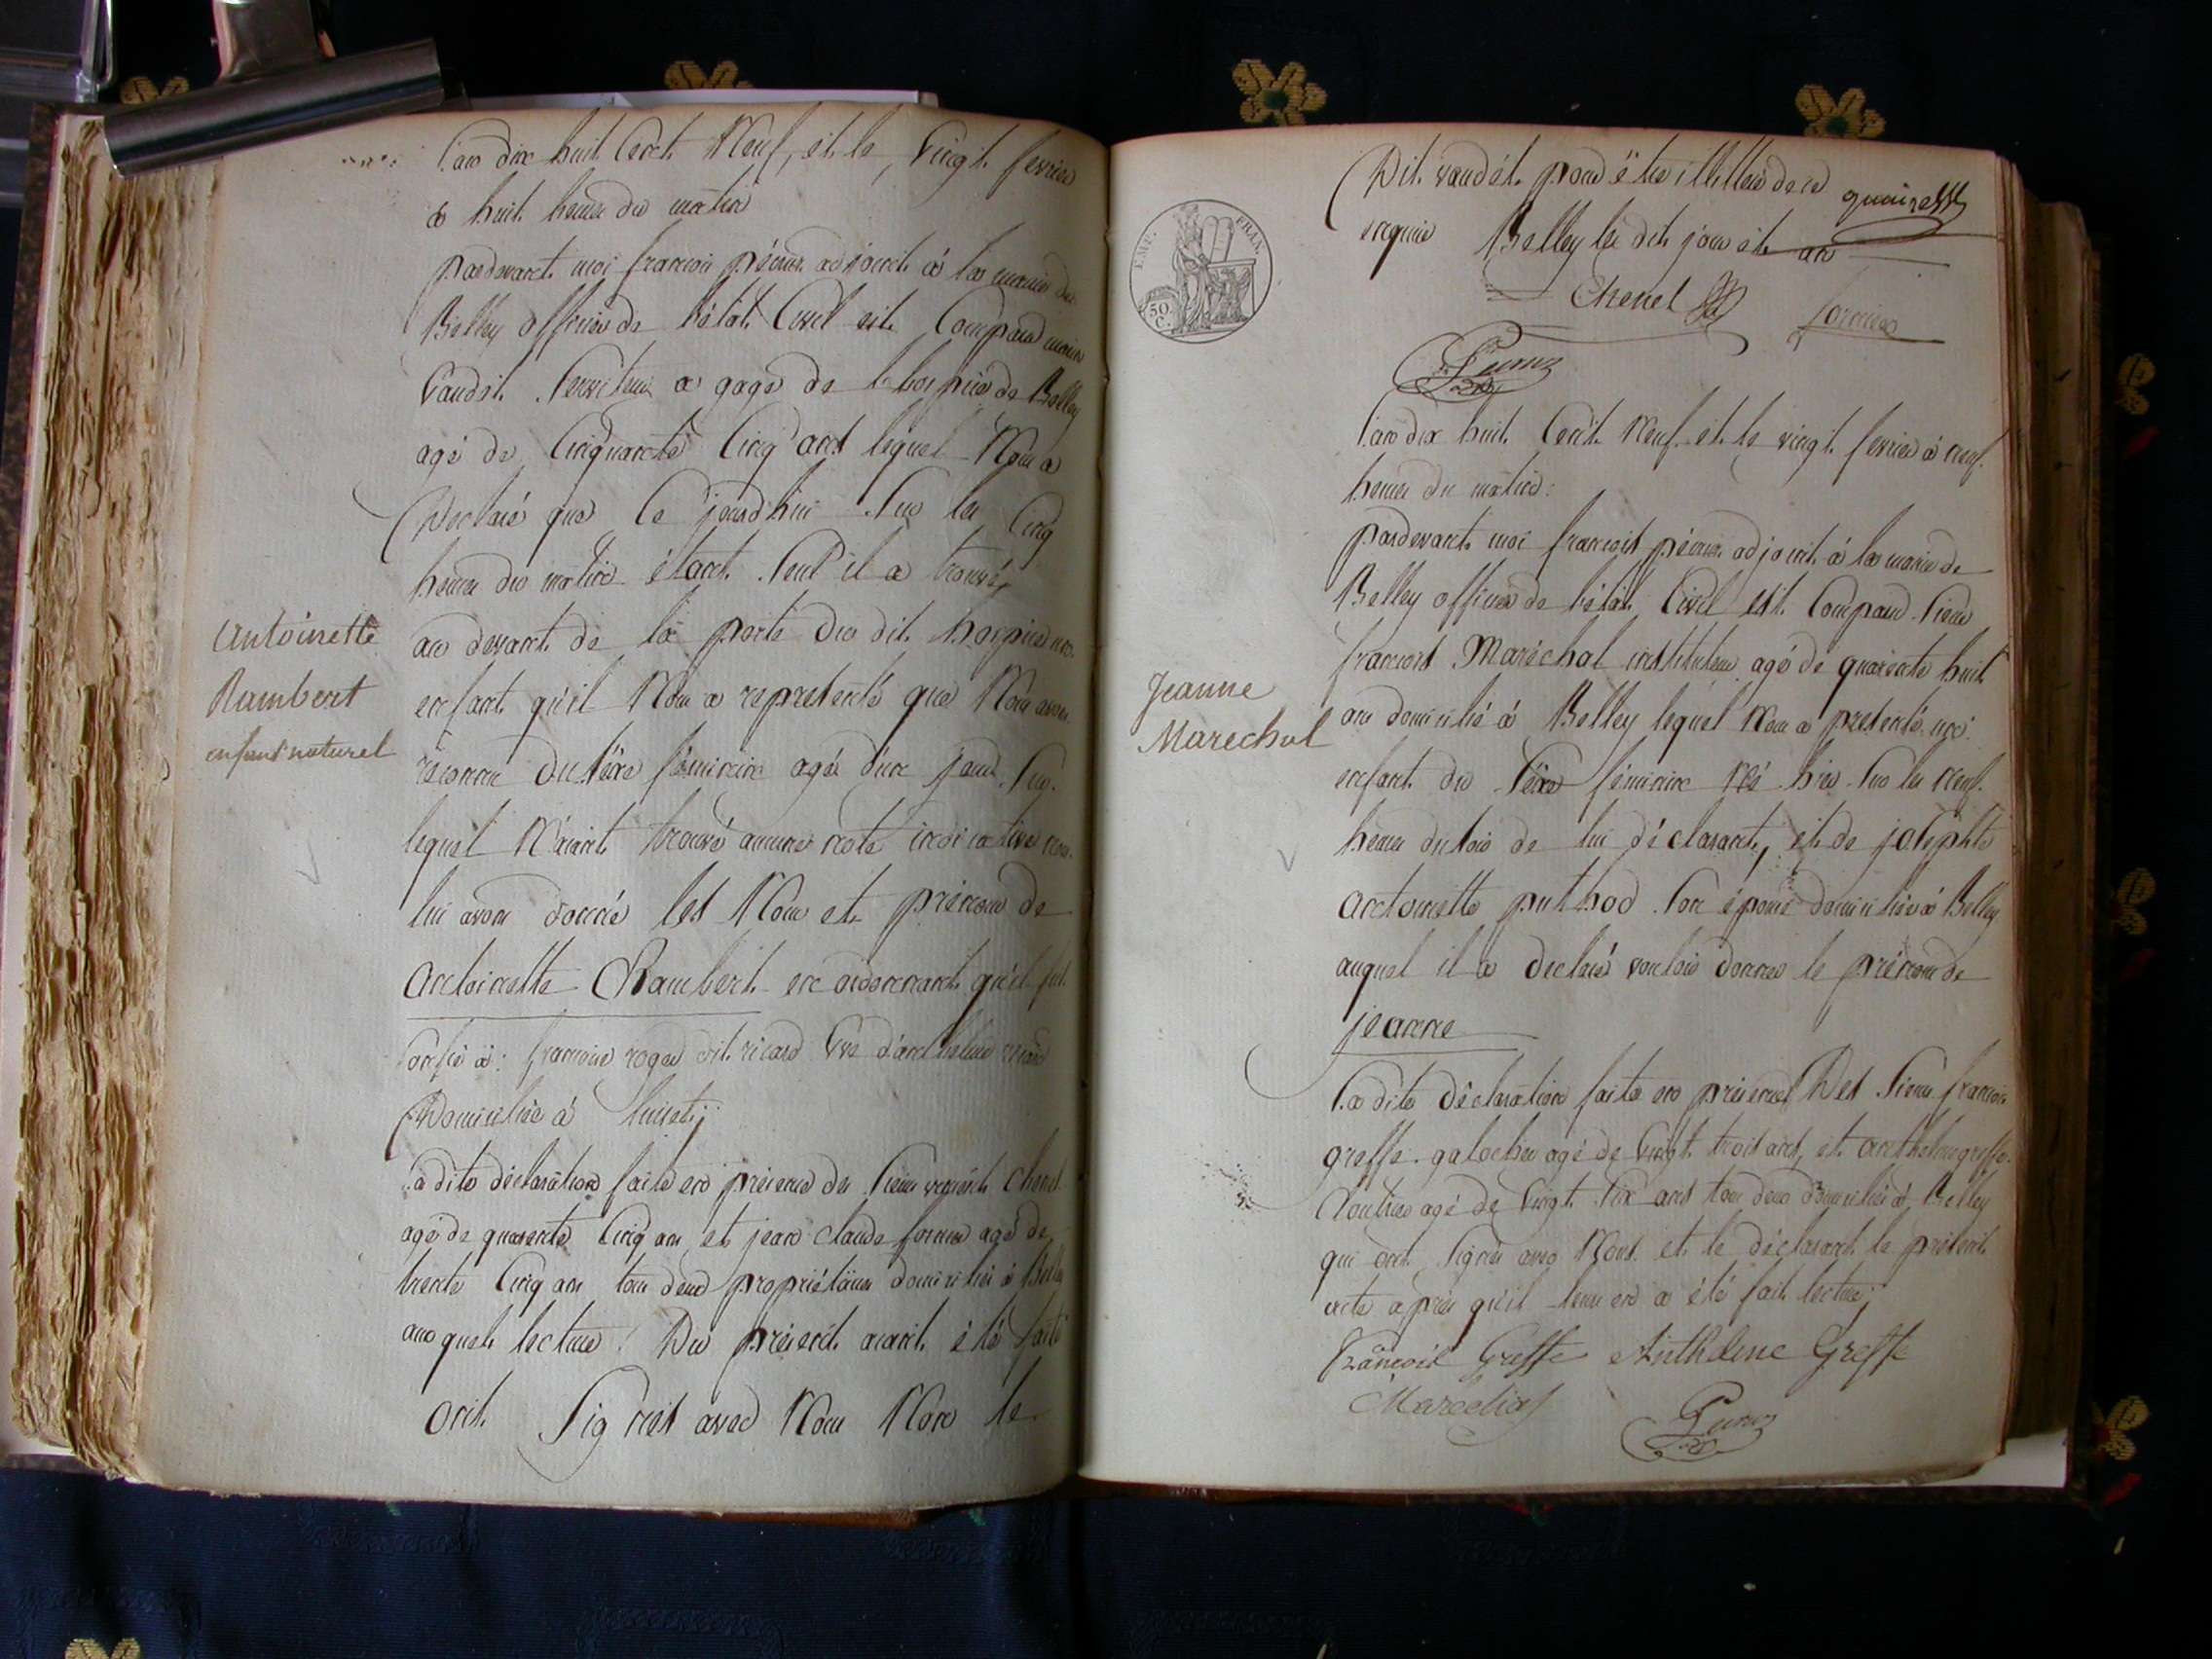 l'an dix huit Cent Neuf, et le, Vingt fevrier
a huit heure du matin
pardevant moi francois péceux adjoint á la mairie de
Belley officier de l'état Civil est Comparu
Vaudet Serviteur a gage de l'hospice de Belley
agé de Cinquante Cinq ans lequel Nous a
Déclaré que Ce jourdhui Sur les Cinq
heures du matin étant Seul il a trouvé
au devant de la porte du dit hospice un
enfant qu'il Nous a representé que Nous avons
reconnu du séxe féminin agé d'un jour Sur
lequel N'aiant trouvé aucune note indicative nous
lui avons donné les Nom et prénom de
Antoinette Rambert en ordonnant qu'il fut
Confié á: francoise roger dit ricard Vve d'anthelme
Domiciliée á
Antoinette
Rambert
enfant naturel
la dite déclaration faite en présence des Sieurs Chenel
agé de quarente Cinq ans et jean claude fornier agé de
trente Cinq ans tous deux propriétaires domiciliés á Belley
aux quels lecture Du présent aiant été faite
ont Signés avec Nous Non le
Dit vaudet pour être illitteré de ce
requis Belley les dit jour et an
Chenel
EMP. FRAN.
50 C.
l'an dix huit Cent Neuf et le vingt fevrier á neuf
heures du matin:
pardevant moi francois péceux adjoint á la mairie de
Belley officier de l'état Civil est Comparu Sieur
francois Maréchal instituteur agé de quarente huit
ans domicilié á Belley lequel Nous a presenté un
enfant du Séxe féminin Né hier Sur les neuf
heures du soir de lui déclarant, et de joséphte
antoinette puthod Son épouse domiciliée á Belley
auquel il a declaré vouloir donner le prénom de
jeanne
Jeanne
Marechal
La dite déclaration faite en présence Des Sieurs francois
greffe galocher agé de Vingt trois ans, et anthelme greffe
Cloutier agé de Vingt Six ans tous deux domiciliés á Belley
qui ont Signés avec Nous et le déclarant le présent
acte aprés qu'il leur en a été fait lecture
François Greffe Anthelme Greffe
Marechal